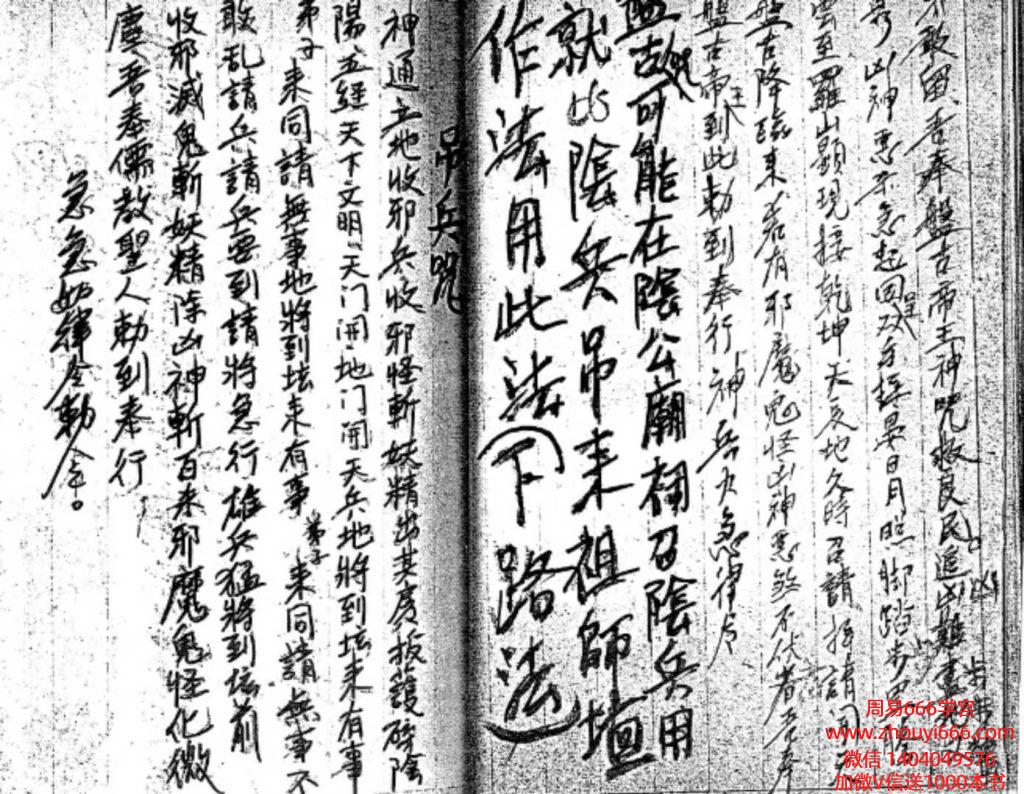 不敢留吾奉盤古帝王神咒救良民追凶難
凶神惡 不急起回 双手接晏日月照脚踏步
雲至羅山顯現接乾坤天友地久時召請 拜請
盤古降臨來若有邪魔鬼怪凶神惡煞不伏者吾奉
盤古帝王到此勅到奉行神兵火急律令
盤古咒可能在陰公廟 召陰兵用
就此陰兵吊來祖師壇
作法用此法(下路法)
吊兵咒
神通立地收邪兵收邪怪斬妖精出其 扳 陰
陽五經天下文明天门開地门開天兵地將到坛来有事
弟子来同請無事地將到坛来有事弟子来同請無事不
敢乱請兵請兵要到請將急行雄兵猛將到坛前
收邪滅鬼斬妖精除凶神斬百来邪魔鬼怪化微
塵吾奉儒教聖人勅到奉行
急急如律令勅令。
周易666学家
www.zhouyi666.com
微信 1404049576
加微V信送1000本书